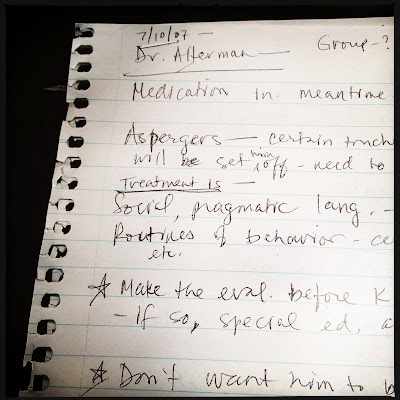 7/10/07 —
Dr. Alterman — Group - ?
Medication in meantime
Aspergers — certain
will be set him off - need to
Treatment is —
Social, pragmatic lang. -
Routines of behavior - ce
etc.
* Make the eval. before K
- If so, special ed. a
* Don't want him to b